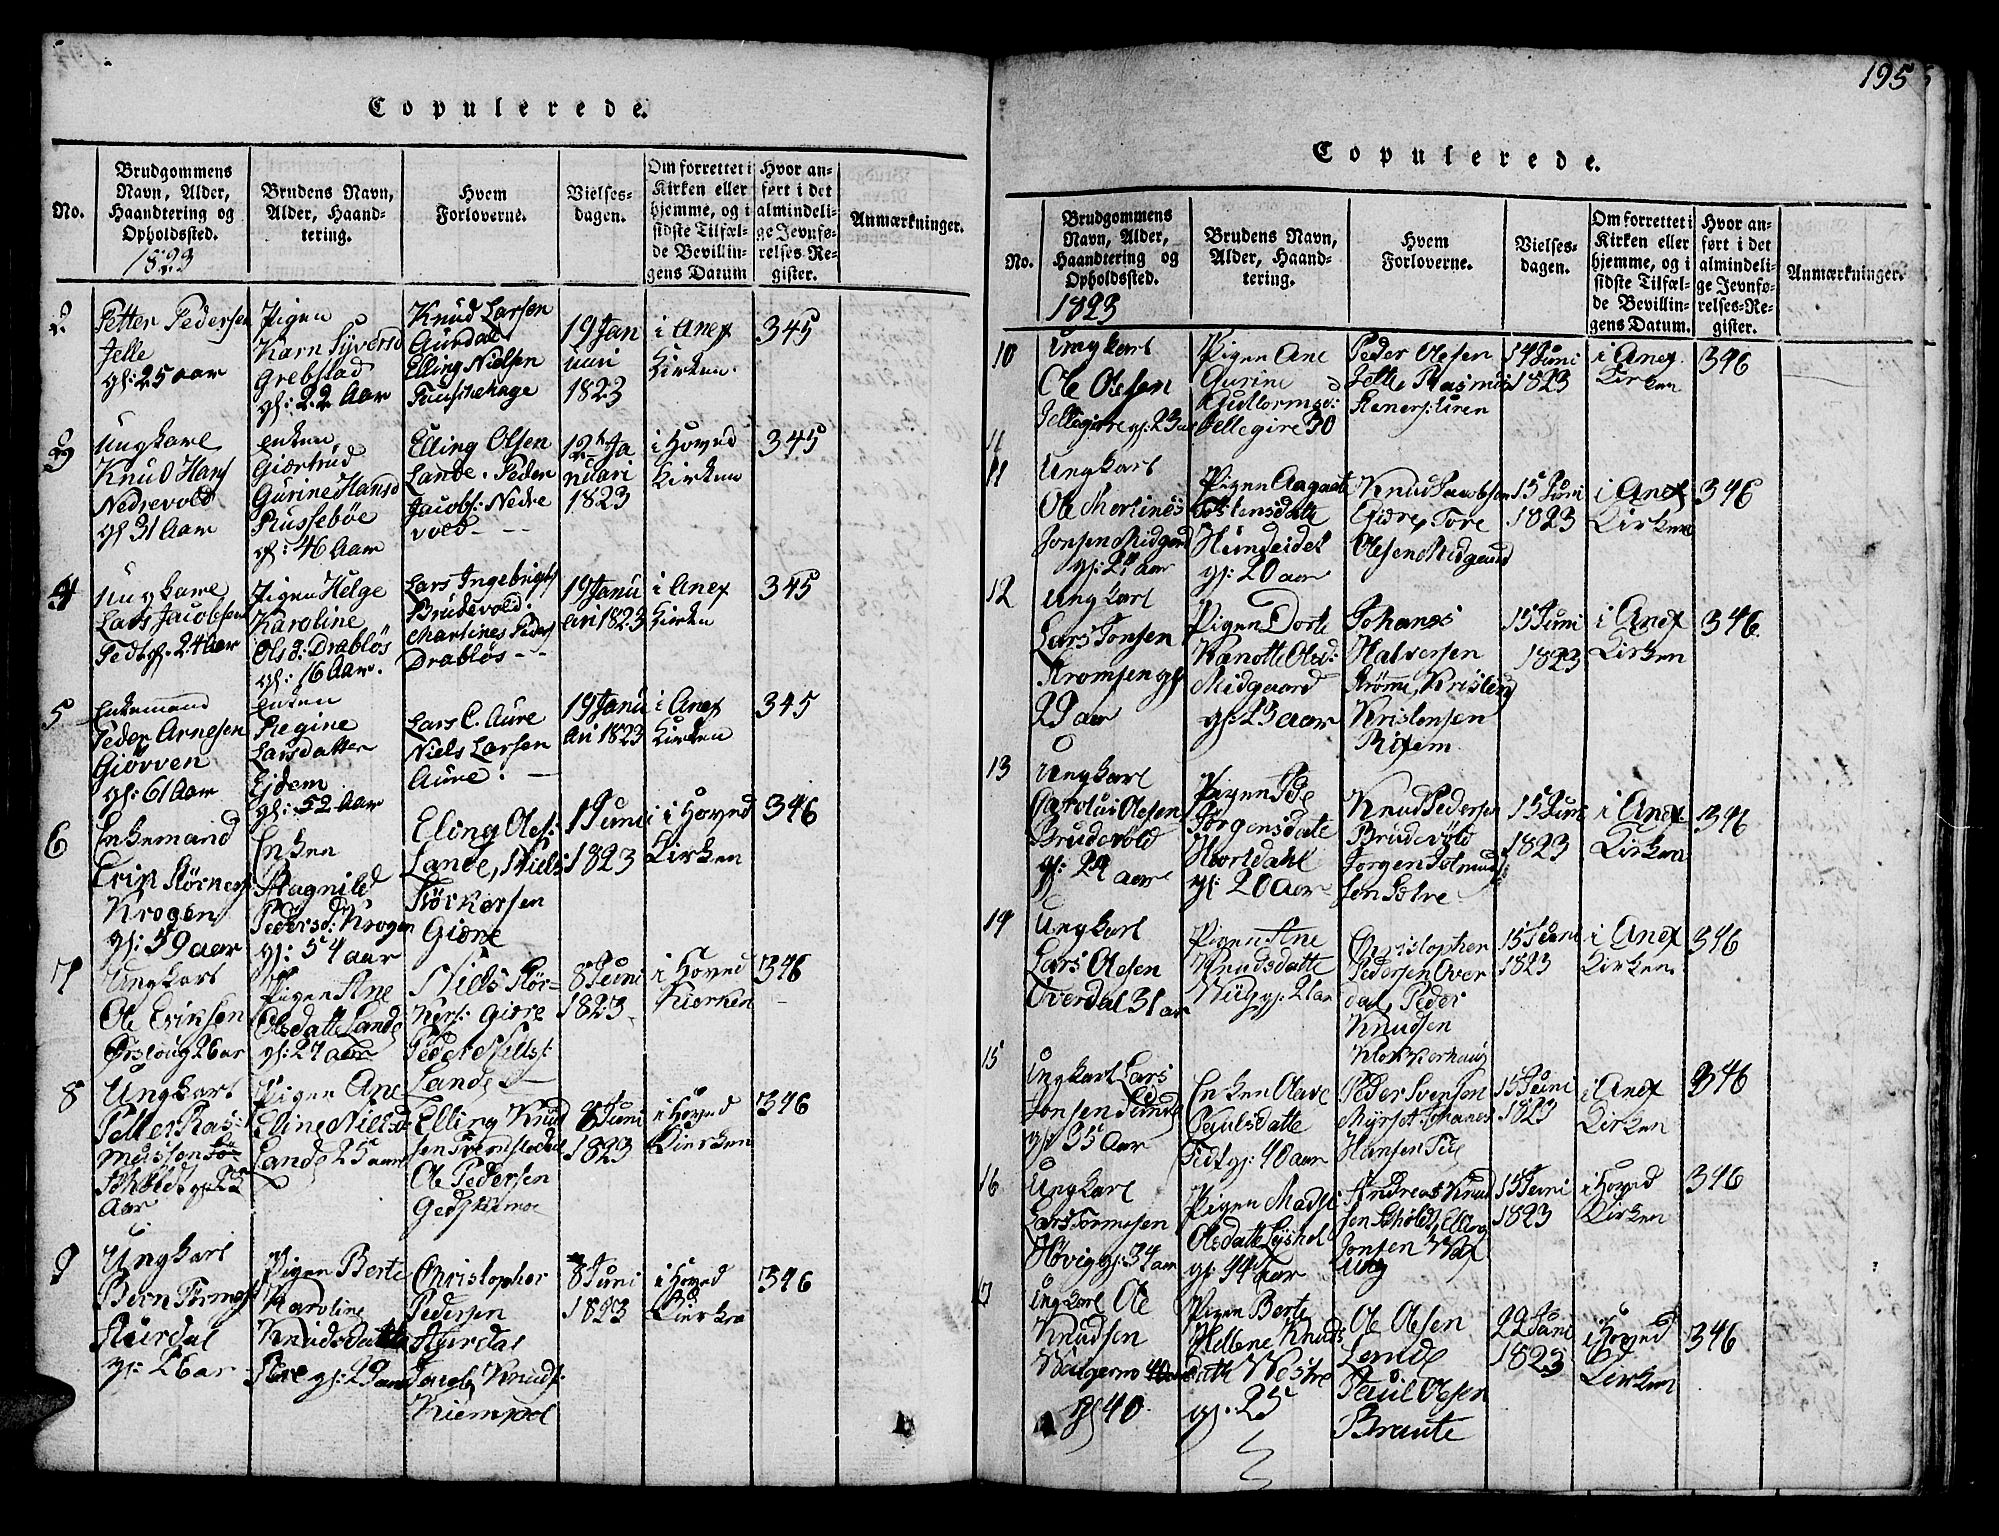 Copulerede.
No.
Brudgommens
Navn, Alder,
Haandtering og
Opholdssted.
1823
Brudens Navn,
Alder, Haand-
tering.
Hvem
Forloverne.
Vielses-
dagen.
Om forrettet i
Kirken eller
hjemme, og i
sidste Tilfæl-
de Bevillin-
gens Datum
Hvor an-
ført i det
almindeli-
ge Jevnfø-
relses-Re-
gister.
Anmærkninger.
2
Petter Pedersen
Jelle
gl: 25 aar
Pigen
Karn Sÿversd
Grebstad
gl: 22 Aar
Knud Larsen
Aurdal
Elling Nielsen
19 Jan
uari
1823
i Anex
Kirken.
345
3
Ungkare
Knud Hans
Nedrevold
gl 31 Aar
enken
Giærtrud
Gurine Hansd
Russebøe
gl: 46 Aar
Elling Olsen
Lande. Peder
Jacobs: Nedre
vold --
12te Ja
nuari
1823
i Hoved
Kirken
345
4
Ungkare
Lars Jacobsen
Tedt gl. 24 Aar
Pigen Helge
Karoline
Olsd: Drabløs
gl: 16 Aar.
Lars Ingebrigts
Brudevold.
Martines Peders
Drabløs --
19 Janu
ari 1823
i Anex
Kirken
345
5
Enkemand
Peder Arnesen
Giørven
gl: 61 Aar
enken
Regine
Larsdatter
Ejdem
gl: 52 Aar
Lars C. Aure
Niels Larsen
Aure: -
19 Janu
ari 1823
i Anex
Kirken
345
6
Enkemand
Erik Størners
Krogen
gl: 59 aar
Enken
Ragnild
Pedersd: Krogen
gl: 54 aar
Eling Oles:
Lande, Niels
Størkersen
Giøre
1 Juni
1823
i Hoved
Kirken
346
7
Ungkarl
Ole Eriksen
Ørskoug 26 ar
Pigen Ane
Olsdatt Lande
gl: 27 aar
Niels Stør-
kers: Giøre
Peder Niels:
Lande -
8 Juni
1823
i Hoved
Kierken
346
8
Ungkarl
Petter Ras:
mussen
Søholdt gl: 23
Aar
Pigen Ane
Elline Nielsd
Lande 25 aar
Elling Knud
sen
Ole Pedersen
8 Juni
1823
i Hoved
Kierken
346
9
Ungkarl
Bern Tormos
Aurdal
gl: 26 ar
Pigen Berte
Karoline
Knudsdatte
gl: 29 aar
Christopher
Pedersen
Aurdal
Jacob Knuds:
8 Juni
1823
i Hoved
Kierke
346
195
Copulerede.
No.
Brudgommens
Navn, Alder,
Haandtering og
Opholdssted.
1823
Brudens Navn,
Alder, Haand-
tering.
Hvem
Forloverne.
Vielses-
dagen.
Om forrettet i
Kirken eller
hjemme, og i
sidste Tilfæl-
de Bevillin-
gens Datum.
Hvor an-
ført i det
almindeli-
ge Jevnfø-
relses-Re-
gister.
Anmærkninger.
10
Ungkarl
Ole Olssen
Jellegire gl: 23 aar
Pigen Ane
Gurine
Jellegire 30
Peder Olesen
Jelle, Rasmus
14 Juni
1823
i Anex.
Kirken
346
11
11
Ungkarl
Ole Mortines
Jonsen Midgard
gl: 24 aar
Pigen Aagaate
Hundeidet
gl: 20 aar
Knud Jacobsen
Giøre, Tore
Olesen Midgaard
15 Juni
1823
i Anex
Kirken
346
12
Ungkarl
Lars Jonsen
Strømsen gl
29 aar
Pigen Dorte
Kanotte Olsd:
Midgaard
gl: 23 aar
Johanes
Halversen
Strøme, Kristen
Kristensen
Rixem
15 Juni
1823
i Anex
Kirken
346
13
Ungkarl
Carolus Olesen
Brudevold
gl: 24 aar
Pigen
Jørgensdatte
Hvortdahl
gl: 20 Aar
Knud Pedersen
Brudevold
Jørgen
15 Juni
1823
i Anex
Kirken
346
14
Ungkarl
Lars Olesen
Overdal 31 ar
Pigen Ane
Knudsdatte
Christopher
Pedersen Over
dal, Peder
Knudsen
Klokkerhaug
15 Juni
1823
i Anex
Kirken
346
15
Ungkarl Lars
Jonsen
gl 35 Aar
Enken Olave
Paulsdatte
Tedt gl: 40 aar
Peder Svensen
Myrset Johanes
Hansen
15 Juni
1823
i Anex
Kirken
346
16
Ungkarl
Lars Tormosen
Høvig gl: 34 aar
Pigen Madsi
Olsdatt
gl: 44 aar
Andreas Knud
sen Søholdt, Elling
Jonsen
15 Juni
1823
i Hoved
Kirken
346
17
Ungkarl Ole
Knudsen
gl 40
Pigen Berte
Hellene Knuds
datt Westre
gl. 25
Ole Olesen
Lande
Paul Olesen
Braute
22 Juni
1823
i Hoved
Kirken
346